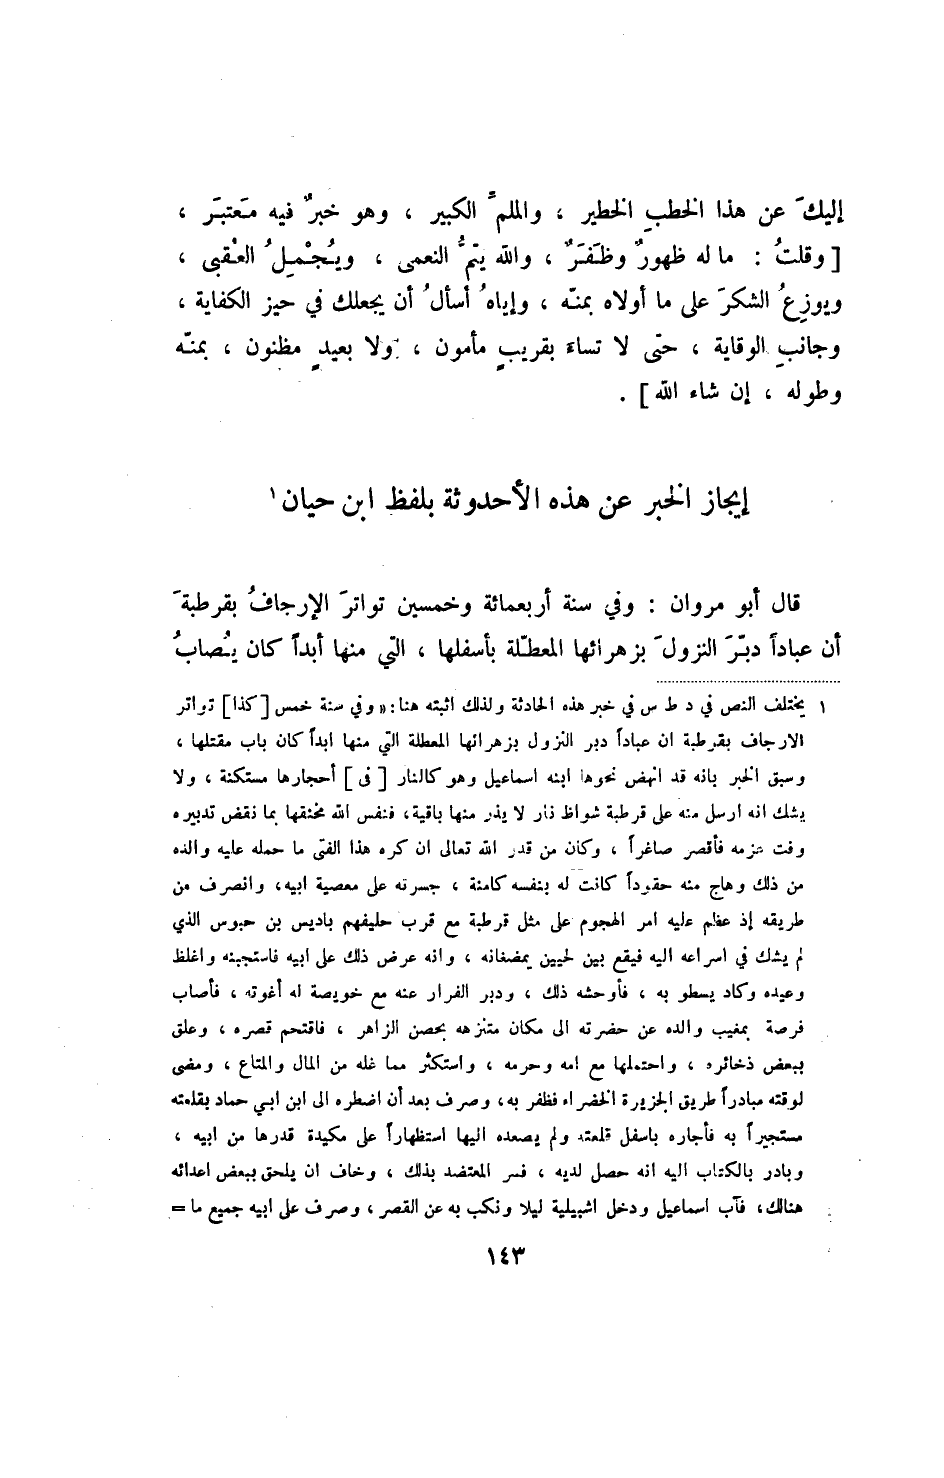 إليكَ عن هذا الخطبِ الخطير ، والملمِّ الكبير ، وهو خبرٌ فيه مُعتبَر ،
[ وقلتُ : ما له ظهورٌ وظَفَرٌ ، والله يتمُّ النعمى ، ويُجْمِلُ العُقبى ،
ويوزِعُ الشكرَ على ما أولاه بمنّه ، وإياهُ أسألُ أن يجعلك في حيز الكفاية ،
وجانبِ الوقاية ، حتى لا تساءَ بقريبٍ مأمون ، ولا بعيدٍ مظنون ، بمنّه
وطوله ، إن شاء الله ] .
إيجاز الخبر عن هذه الأحدوثة بلفظ ابن حيان١
قال أبو مروان : وفي سنة أربعمائة وخمسين تواترَ الإرجافُ بقرطبةَ
أن عباداً دبّرَ النزولَ بزهرائها المعطّلة بأسفلها ، التي منها أبداً كان يُصابُ
١ يختلف النص في د ط س في خبر هذه الحادثة ولذلك اثبته هنا : « وفي سنة خمس [ كذا ] تواتر
الارجاف بقرطبة ان عباداً دبر النزول بزهرائها المعطلة التي منها ابداً كان باب مقتلها ،
وسبق الخبر بانه قد انهض نحوها ابنه اسماعيل وهو كالنار [ في ] أحجارها مستكنة ، ولا
يشك انه ارسل منه على قرطبة شواظ نار لا يذر منها باقية ، فنفس الله مخنقها بما نقض تدبيره
وفت عزمه فأقصر صاغراً ، وكان من قدر الله تعالى ان كره هذا الفتى ما حمله عليه والده
من ذلك وهاج منه حقوداً كانت له بنفسه كامنة ، جسرته على معصية ابيه ، وانصرف من
طريقه إذ عظم عليه امر الهجوم على مثل قرطبة مع قرب حليفهم باديس بن حبوس الذي
لم يشك في اسراعه اليه فيقع بين لحيين يمضغانه ، وانه عرض ذلك على ابيه فاستجبنه واغلظ
وعيده وكاد يسطو به ، فأوحشه ذلك ، ودبر الفرار عنه مع خويصة له أغوته ، فأصاب
فرصة بمغيب والده عن حضرته الى مكان متنزهه بحصن الزاهر ، فاقتحم قصره ، وعلق
ببعض ذخائره ، واحتملها مع امه وحرمه ، واستكثر مما غله من المال والمتاع ، ومضى
لوقته مبادراً طريق الجزيرة الخضراء فظفر به ، وصرف بعد أن اضطره الى ابن ابي حماد بقلعته
مستجيراً به فأجاره باسفل قلعته ولم يصعده اليها استظهاراً على مكيدة قدرها من ابيه ،
وبادر بالكتاب اليه انه حصل لديه ، فسر المعتضد بذلك ، وخاف ان يلحق ببعض اعدائه
هنالك ، فآب اسماعيل ودخل اشبيلية ليلا ونكب به عن القصر ، وصرف على ابيه جميع ما =
١٤٣